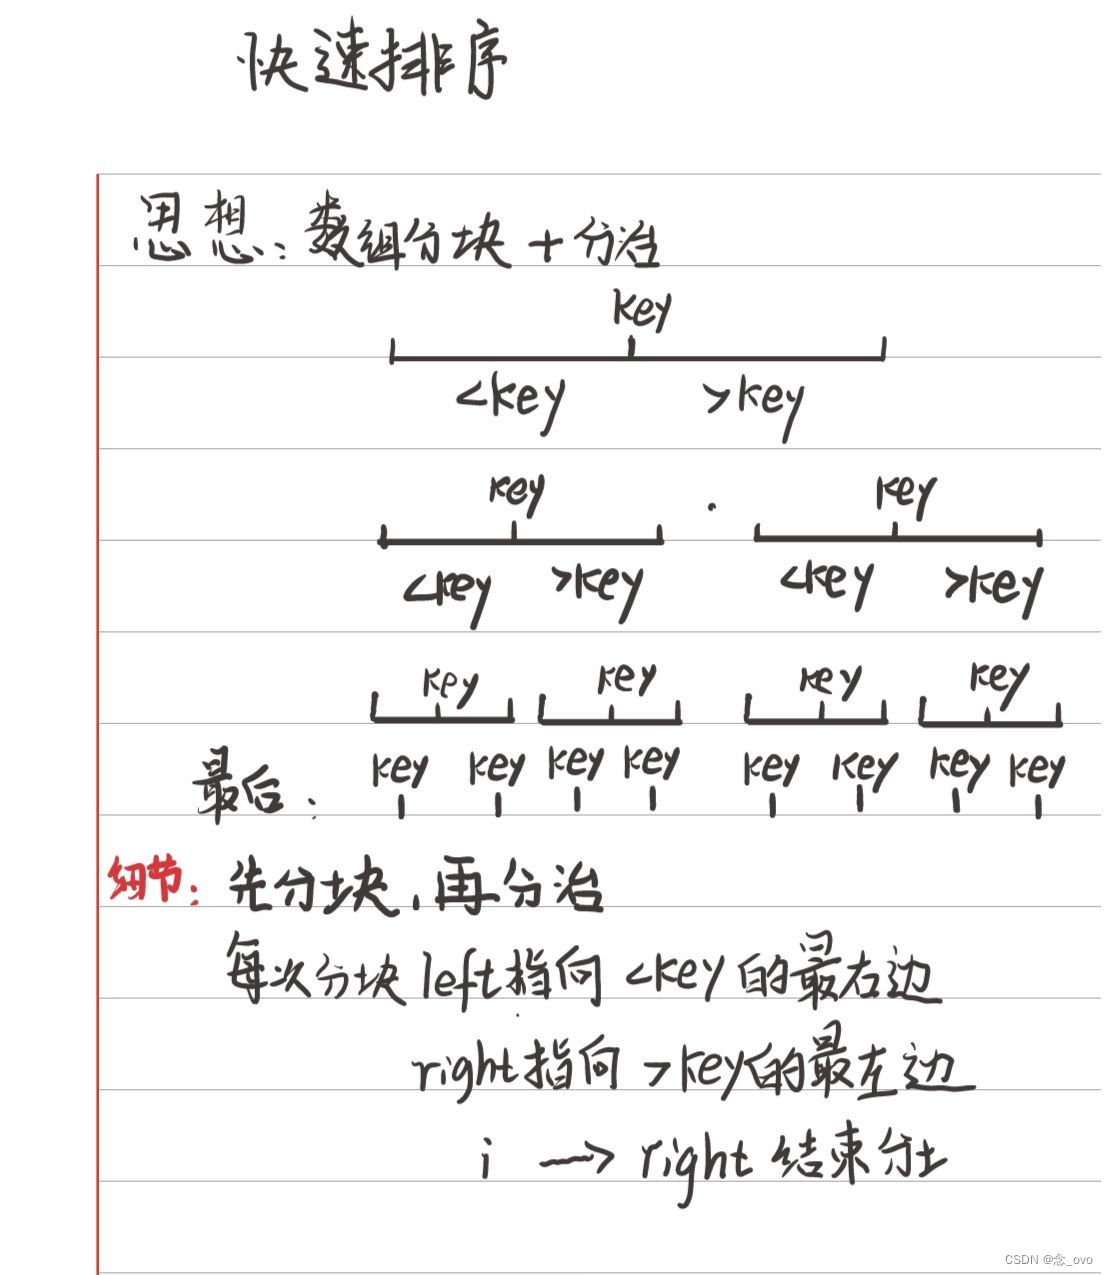 快速排序
思想:数组分块 + 分治
key
<key >key
key key
<key >key <key >key
key key key key
最后: key key key key key key key key
细节:先分块,再分治
每次分块 left指向 <key 的最右边
right指向 >key的最左边
i → right 结束分
CSDN @念_ovo